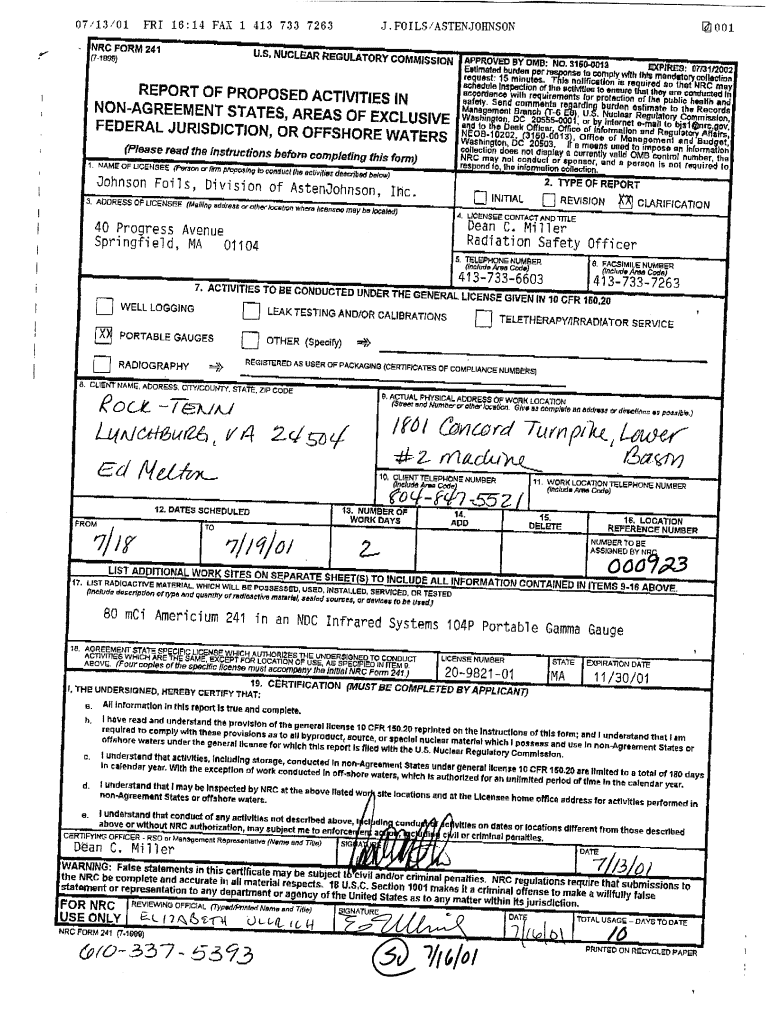 07/13/01 FRI 16:14 FAX 1 413 733 7263 J.FOILS/ASTENJOHNSON 001
NRC FORM 241
(7-1999)
U.S. NUCLEAR REGULATORY COMMISSION
REPORT OF PROPOSED ACTIVITIES IN
NON-AGREEMENT STATES, AREAS OF EXCLUSIVE
FEDERAL JURISDICTION, OR OFFSHORE WATERS
(Please read the instructions before completing this form)
APPROVED BY OMB: NO. 3150-0013 EXPIRES: 07/31/2002
Estimated burden per response to comply with this mandatory collection
request: 15 minutes. This notification is required so that NRC may
schedule inspection of the activities to ensure that they are conducted in
accordance with requirements for protection of the public health and
safety. Send comments regarding burden estimate to the Records
Management Branch (T-6 E6), U.S. Nuclear Regulatory Commission,
Washington, DC 20555-0001, or by internet e-mail to bjs1@nrc.gov,
and to the Desk Officer, Office of Information and Regulatory Affairs,
NEOB-10202, (3150-0013), Office of Management and Budget,
Washington, DC 20503. If a means used to impose an information
collection does not display a currently valid OMB control number, the
NRC may not conduct or sponsor, and a person is not required to
respond to, the information collection.
1. NAME OF LICENSEE (Person or firm proposing to conduct the activities described below)
Johnson Foils, Division of AstenJohnson, Inc.
2. TYPE OF REPORT
INITIAL REVISION XX CLARIFICATION
3. ADDRESS OF LICENSEE (Mailing address or other location where licensee may be located)
40 Progress Avenue
Springfield, MA 01104
4. LICENSEE CONTACT AND TITLE
Dean C. Miller
Radiation Safety Officer
5. TELEPHONE NUMBER
(Include Area Code)
413-733-6603
6. FACSIMILE NUMBER
(Include Area Code)
413-733-7263
7. ACTIVITIES TO BE CONDUCTED UNDER THE GENERAL LICENSE GIVEN IN 10 CFR 150.20
WELL LOGGING LEAK TESTING AND/OR CALIBRATIONS TELETHERAPY/IRRADIATOR SERVICE
XX PORTABLE GAUGES OTHER (Specify)
RADIOGRAPHY REGISTERED AS USER OF PACKAGING (CERTIFICATES OF COMPLIANCE NUMBERS)
8. CLIENT NAME, ADDRESS, CITY/COUNTY, STATE, ZIP CODE
ROCK-TENN
LYNCHBURG, VA 24504
Ed Melton
9. ACTUAL PHYSICAL ADDRESS OF WORK LOCATION
(Street and Number or other location. Give as complete an address or directions as possible.)
1801 Concord Turnpike, Lower
#2 machine Basin
10. CLIENT TELEPHONE NUMBER
(Include Area Code)
804-847-5521
11. WORK LOCATION TELEPHONE NUMBER
(Include Area Code)
12. DATES SCHEDULED
FROM
7/18
TO
7/19/01
13. NUMBER OF
WORK DAYS
2
14.
ADD
15.
DELETE
16. LOCATION
REFERENCE NUMBER
NUMBER TO BE
ASSIGNED BY NRC
000923
LIST ADDITIONAL WORK SITES ON SEPARATE SHEET(S) TO INCLUDE ALL INFORMATION CONTAINED IN ITEMS 9-16 ABOVE.
17. LIST RADIOACTIVE MATERIAL, WHICH WILL BE POSSESSED, USED, INSTALLED, SERVICED, OR TESTED
(Include description of type and quantity of radioactive material, sealed sources, or devices to be used.)
80 mCi Americium 241 in an NDC Infrared Systems 104P Portable Gamma Gauge
18. AGREEMENT STATE SPECIFIC LICENSE WHICH AUTHORIZES THE UNDERSIGNED TO CONDUCT
ACTIVITIES WHICH ARE THE SAME, EXCEPT FOR LOCATION OF USE, AS SPECIFIED IN ITEM 9
ABOVE. (Four copies of the specific license must accompany the initial NRC Form 241.)
LICENSE NUMBER
20-9821-01
STATE
MA
EXPIRATION DATE
11/30/01
19. CERTIFICATION (MUST BE COMPLETED BY APPLICANT)
I, THE UNDERSIGNED, HEREBY CERTIFY THAT:
a. All information in this report is true and complete.
b. I have read and understand the provision of the general license 10 CFR 150.20 reprinted on the instructions of this form; and I understand that I am
required to comply with these provisions as to all byproduct, source, or special nuclear material which I possess and use in non-Agreement States or
offshore waters under the general license for which this report is filed with the U.S. Nuclear Regulatory Commission.
c. I understand that activities, including storage, conducted in non-Agreement States under general license 10 CFR 150.20 are limited to a total of 180 days
in calendar year. With the exception of work conducted in off-shore waters, which is authorized for an unlimited period of time in the calendar year.
d. I understand that I may be inspected by NRC at the above listed work site locations and at the Licensee home office address for activities performed in
non-Agreement States or offshore waters.
e. I understand that conduct of any activities not described above, including conduct of activities on dates or locations different from those described
above or without NRC authorization, may subject me to enforcement action, including civil or criminal penalties.
CERTIFYING OFFICER - RSO or Management Representative (Name and Title)
Dean C. Miller
SIGNATURE
DATE
7/13/01
WARNING: False statements in this certificate may be subject to civil and/or criminal penalties. NRC regulations require that submissions to
the NRC be complete and accurate in all material respects. 18 U.S.C. Section 1001 makes it a criminal offense to make a willfully false
statement or representation to any department or agency of the United States as to any matter within its jurisdiction.
FOR NRC
USE ONLY
REVIEWING OFFICIAL (Typed/Printed Name and Title)
ELIZABETH ULLRICH
SIGNATURE
DATE
7/16/01
TOTAL USAGE - DAYS TO DATE
10
NRC FORM 241 (7-1999)
PRINTED ON RECYCLED PAPER
610-337-5393
7/16/01